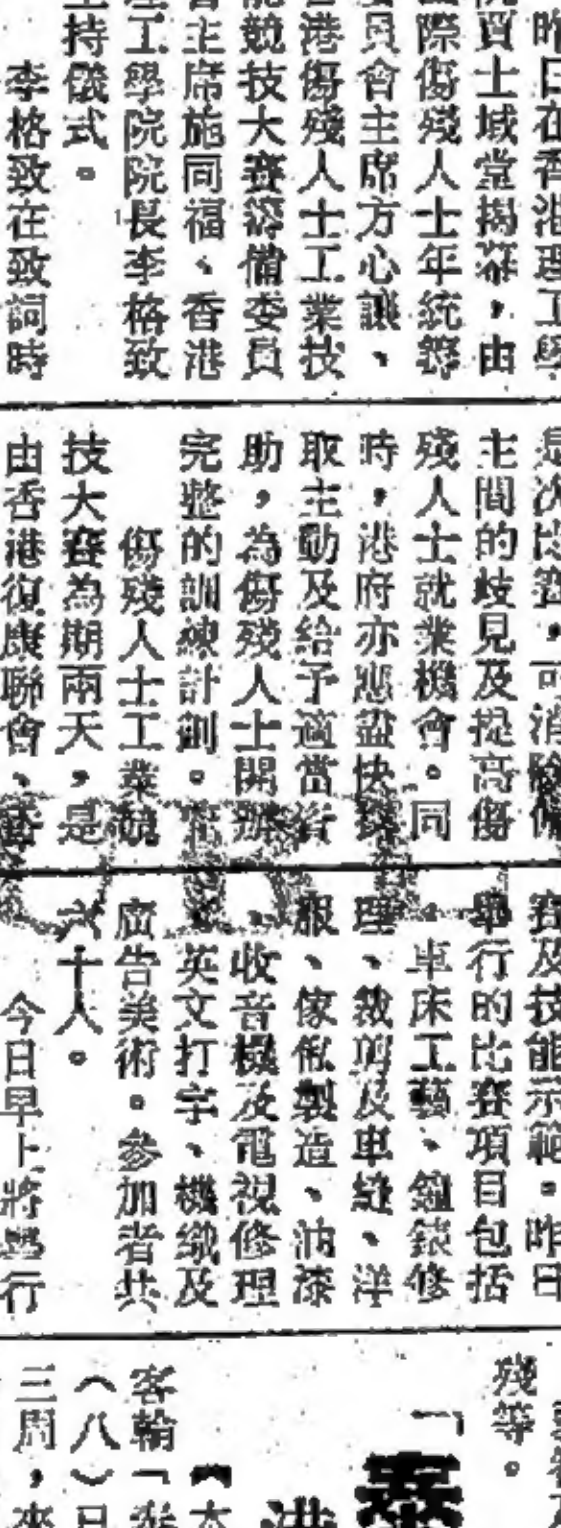 昨日在香港理工學
院賈士域堂揭幕，由
國際傷殘人士年統籌
委員會主席方心讓、
香港傷殘人士工業技
能競技大賽籌備委員
會主席施同福、香港
理工學院院長李格致
主持儀式。
李格致在致詞時
是次比賽，可消除僱
主間的歧見及提高傷
殘人士就業機會。同
時，港府亦應盡快採
取主動及給予適當資
助，為傷殘人士開辦
完整的訓練計劃。
傷殘人士工業競
技大賽為期兩天，是
由香港復康聯會、
賽及技能示範。昨日
舉行的比賽項目包括
車床工藝、鐘錶修
理、裁剪及車縫、洋
服、傢俬製造、油漆
、收音機及電視修理
、英文打字、機織及
廣告美術。參加者共
六十人。
今日早上將舉行
殘等。
「泰
港
【本
客輪「
（八）日
三周，來